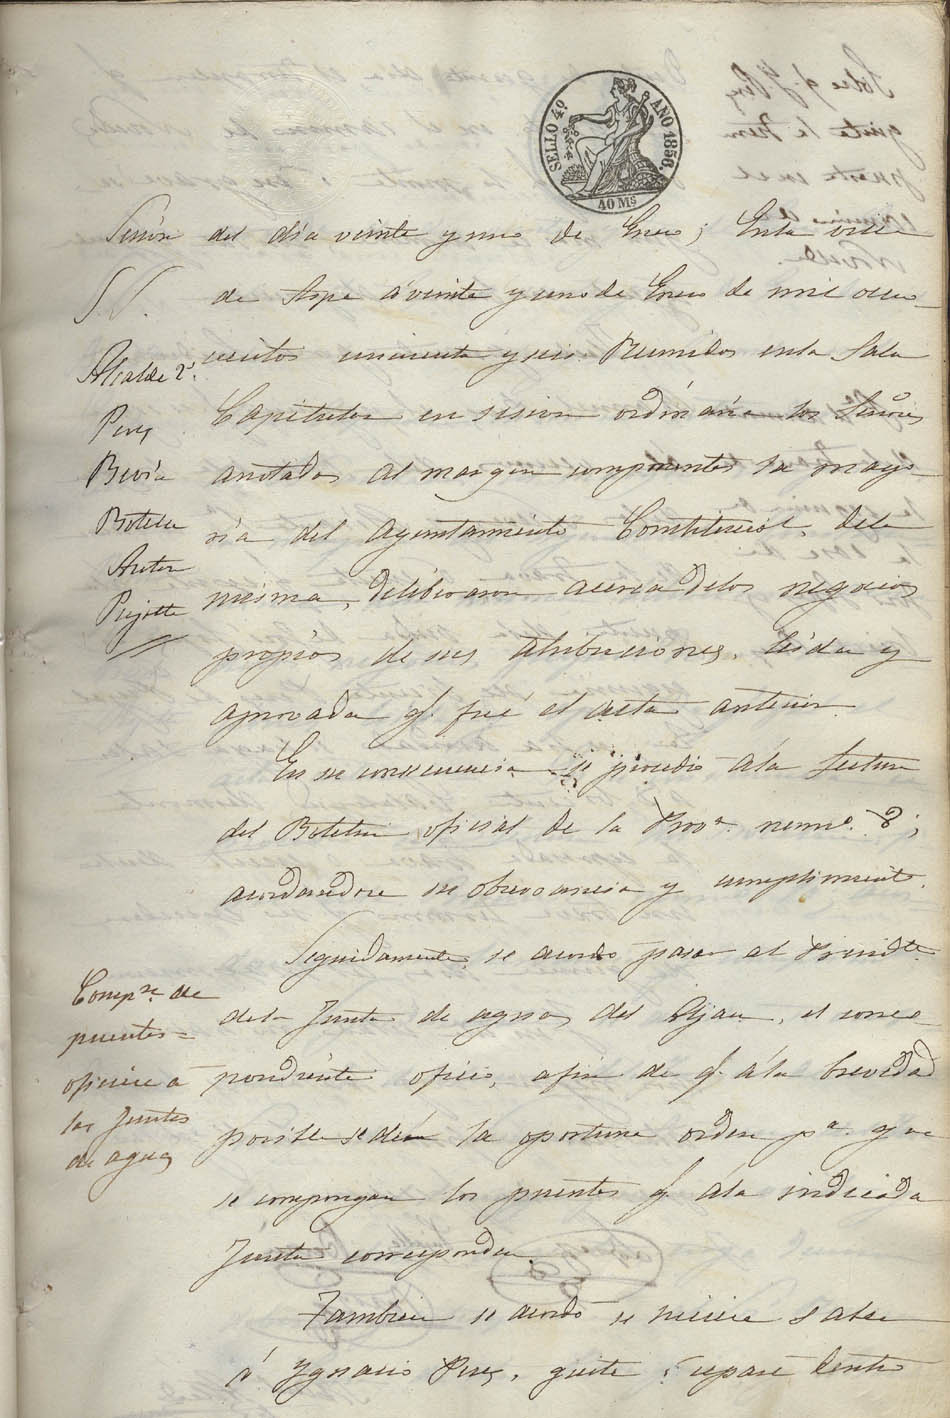 SELLO 4º AÑO 1856.
40 Ms
Sesion del dia veinte y uno de Enero; En la villa
de Aspe á veinte y uno de Enero de mil ocho
cientos cincuenta y seis: Reunidos en la Sala
Capitular en sesion ordinaria los Señores
anotados al margen componentes la mayo
ria del Ayuntamiento Constituciol. dela
misma, deliberaron acerca delos negocios
propios de sus atribuciones, leida y
aprovada q. fué el acta anterior.
S.S.
Alcalde 2º.
Perez
Bevia
Botella
Anton
Pujalte
En su consecuencia se procedió ala lectura
del Boletin oficial de la Prova. numo. 8;
acordandose su observancia y cumplimiento.
Seguidamente se acordó pasar al Presidte.
dela Junta de aguas del Fljau, el corres
pondiente oficio, afin de q. ála brevedad
posible se dén la oportuna orden pa. que
se compongan los puentes q. ála indicada
Junta correspondan.
Compn. de
puentes =
oficiese a
las Juntas
de aguas
Tambien se acordó se hiciese saber
á Ygnacio Perez, quite y repare dentro